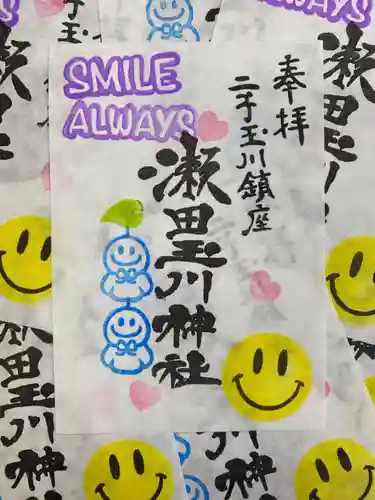 SMILE
ALWAYS
奉拝
二子玉川鎮座
瀬田玉川神社